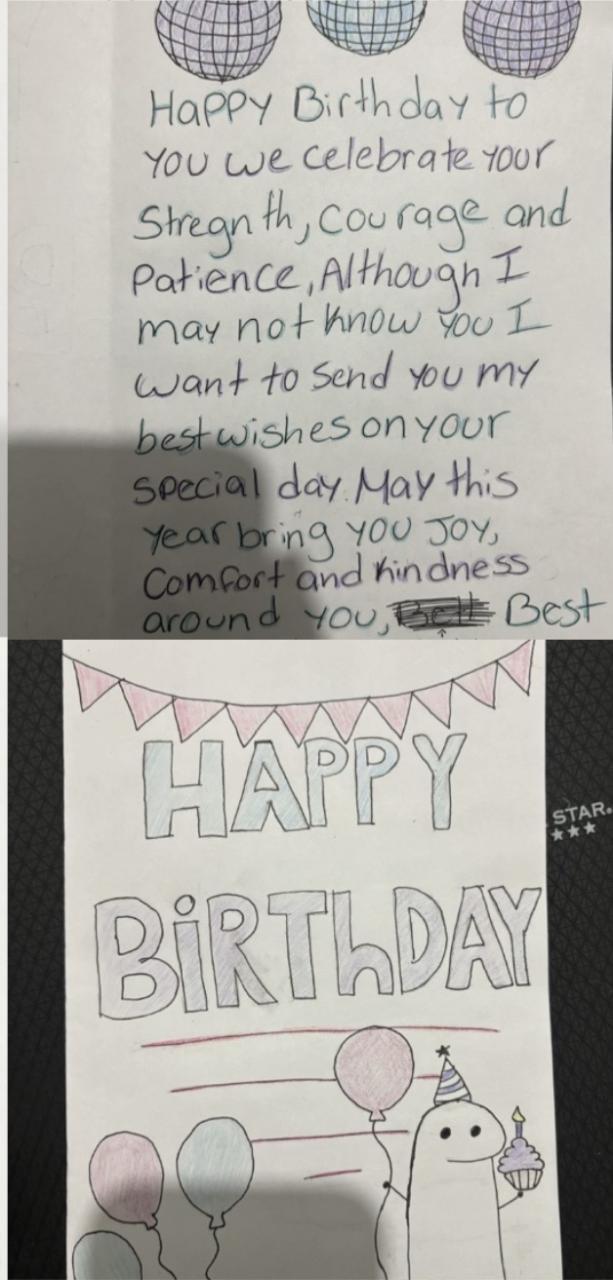 Happy Birthday to
you we celebrate your
Stregnth, courage and
Patience, Although I
may not know you I
want to send you my
best wishes on your
special day. May this
year bring you Joy,
Comfort and kindness
around you, Best
HAPPY
BiRThDAY
STAR.